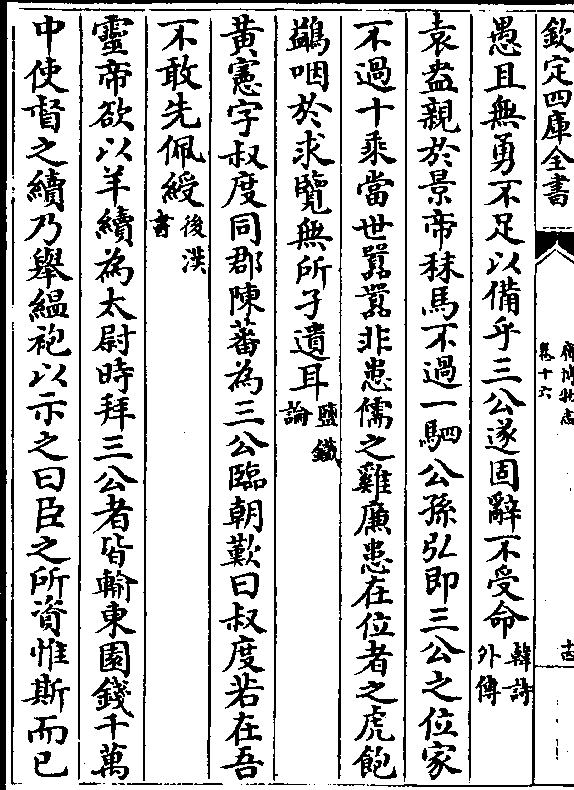 欽定四庫全書
卷十六
愚且無勇不足以備乎三公遂固辭不受命韓詩外傳
袁盎親於景帝秣馬不過一駟公孫弘即三公之位家
不過十乘當世囂囂非患儒之雞廉患在位者之虎飽
鷁咽於求覽無所孑遺耳鹽鐵論
黃憲字叔度同郡陳蕃為三公臨朝歎曰叔度若在吾
不敢先佩綬後漢書
靈帝欲以羊續為太尉時拜三公者皆輸東園錢千萬
中使督之續乃舉縕袍以示之曰臣之所資惟斯而已